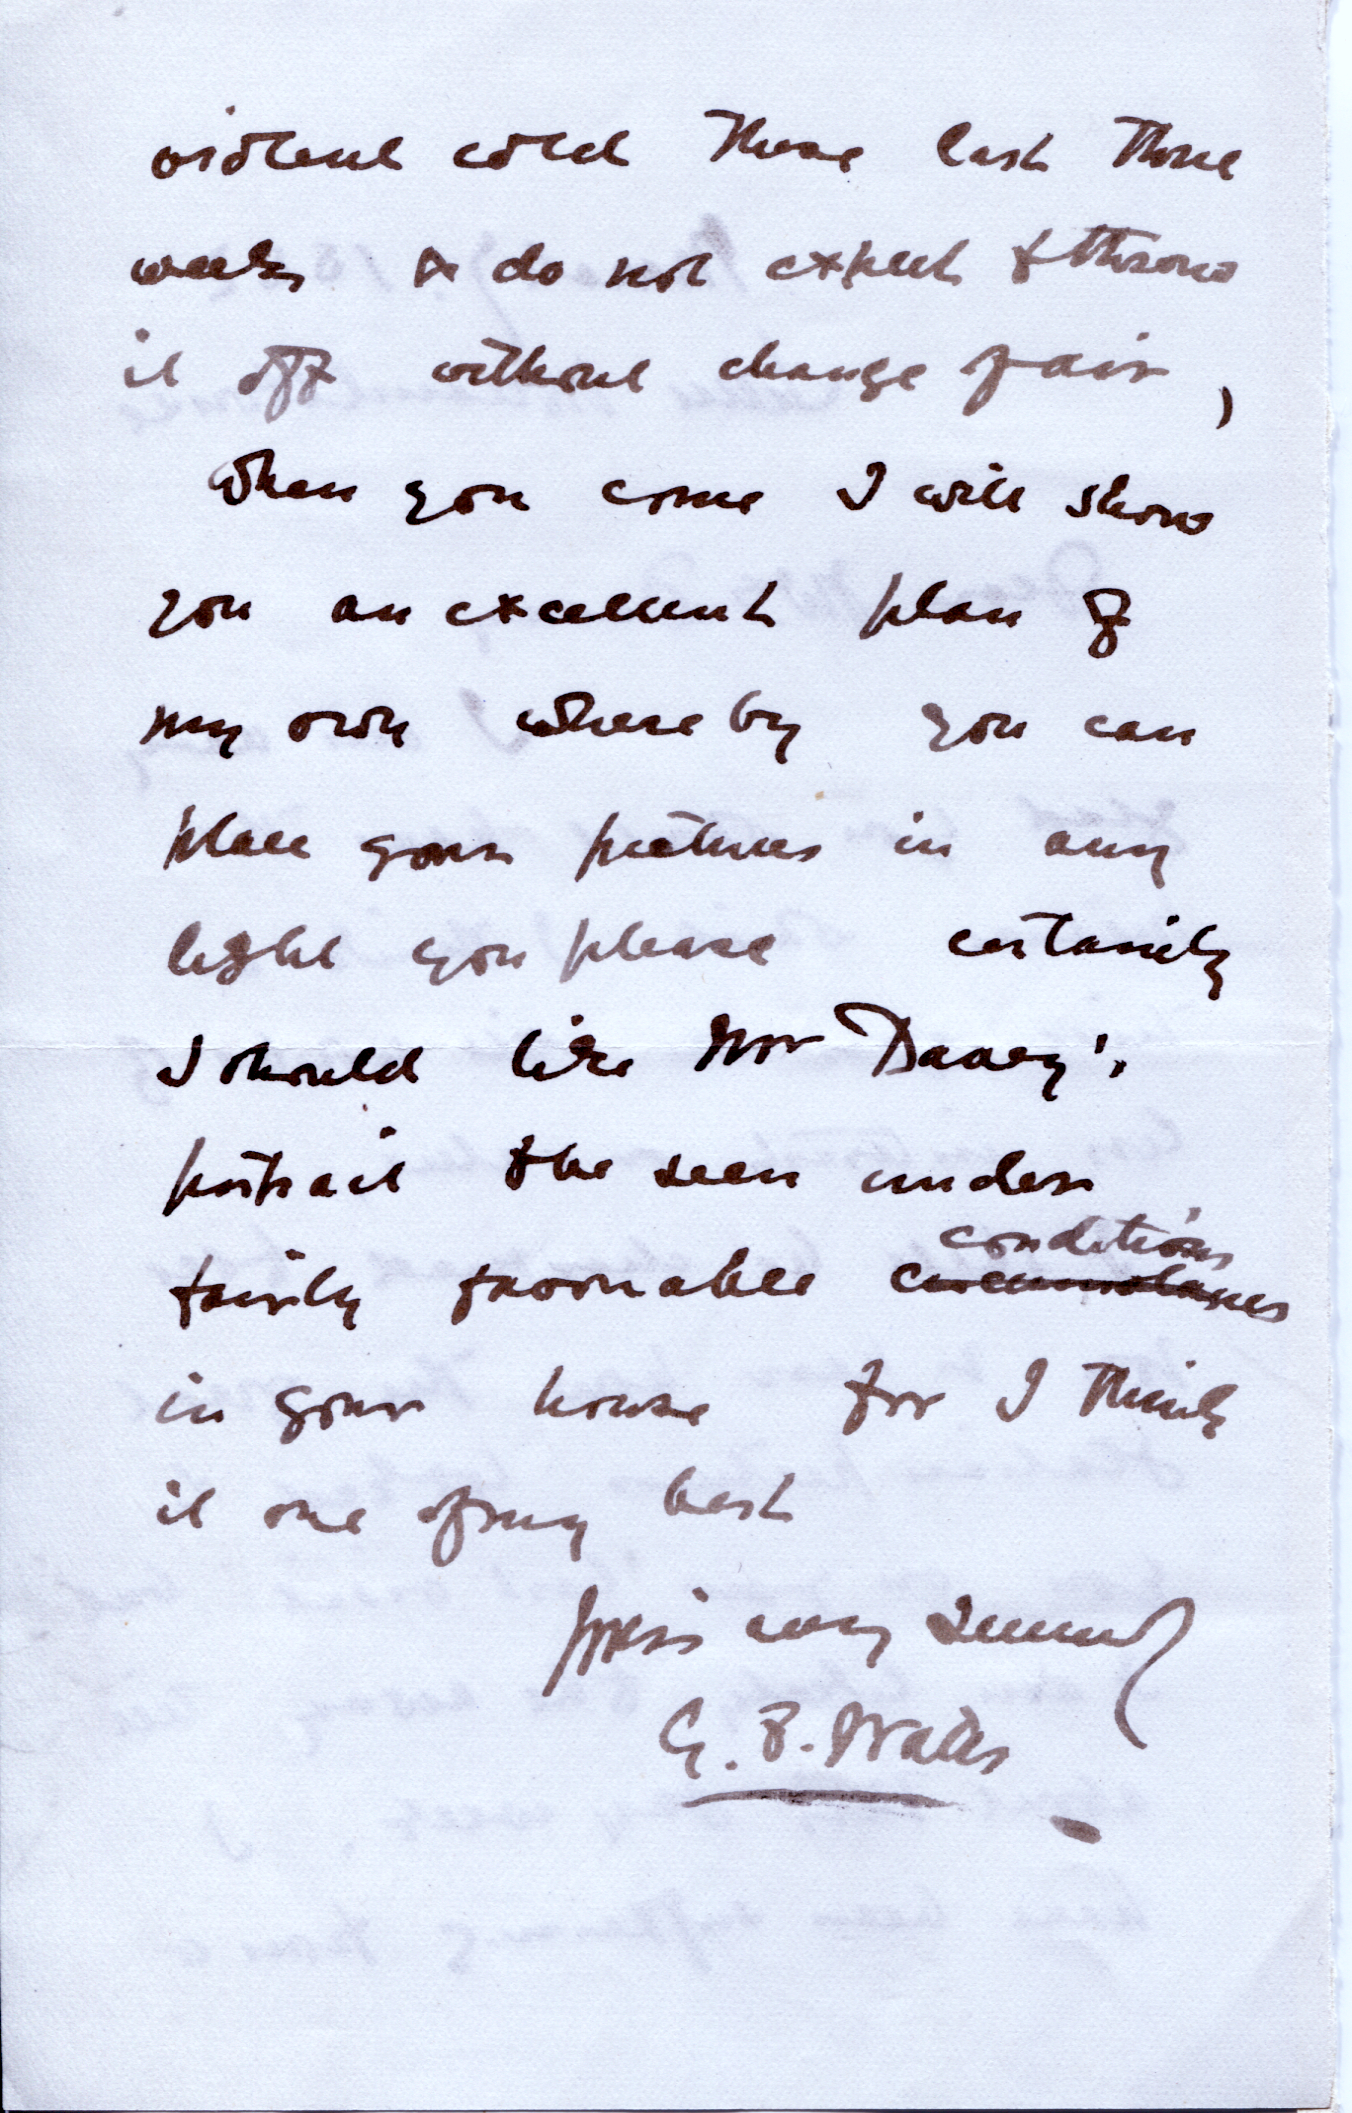 violent cold these last three
weeks & do not expect to throw
it off without change of air,
When you come I will show
you an excellent plan of
my own whereby you can
place your pictures in any
light you please certainly
I should like Mr Davey's
portrait to be seen under
fairly favourable circumstances conditions
in your house for I think
it one of my best
yours very sincerely
G. F. Watts